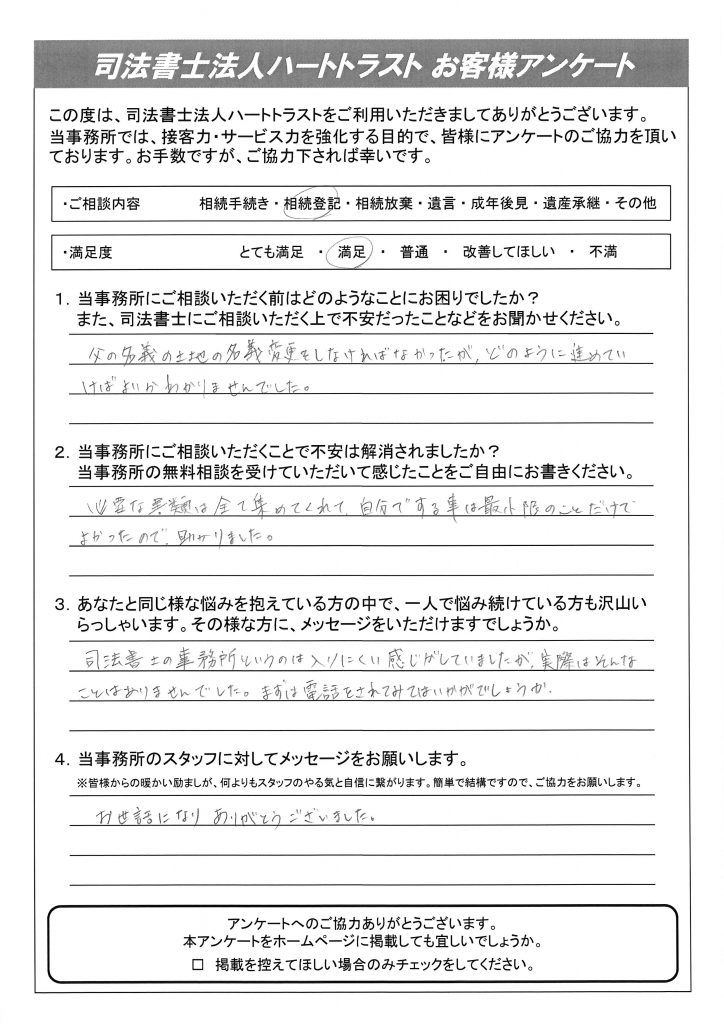 司法書士法人ハートトラスト お客様アンケート
この度は、司法書士法人ハートトラストをご利用いただきましてありがとうございます。
当事務所では、接客力・サービス力を強化する目的で、皆様にアンケートのご協力を頂い
ております。お手数ですが、ご協力下されば幸いです。
・ご相談内容 相続手続き・相続登記・相続放棄・遺言・成年後見・遺産承継・その他
・満足度 とても満足 ・ 満足 ・ 普通 ・ 改善してほしい ・ 不満
1. 当事務所にご相談いただく前はどのようなことにお困りでしたか？
また、司法書士にご相談いただく上で不安だったことなどをお聞かせください。
父の名義の土地の名義変更をしなければなかったが、どのように進めてい
けばよいかわかりませんでした。
2. 当事務所にご相談いただくことで不安は解消されましたか？
当事務所の無料相談を受けていただいて感じたことをご自由にお書きください。
必要な書類は全て集めてくれて、自分でする事は最小限のことだけで
よかったので、助かりました。
3. あなたと同じ様な悩みを抱えている方の中で、一人で悩み続けている方も沢山い
らっしゃいます。その様な方に、メッセージをいただけますでしょうか。
司法書士の事務所というのは入りにくい感じがしていましたが、実際はそんな
ことはありませんでした。まずは電話をされてみてはいかがでしょうか.
4. 当事務所のスタッフに対してメッセージをお願いします。
※皆様からの暖かい励ましが、何よりもスタッフのやる気と自信に繋がります。簡単で結構ですので、ご協力をお願いします。
お世話になりありがとうございました。
アンケートへのご協力ありがとうございます。
本アンケートをホームページに掲載しても宜しいでしょうか。
□ 掲載を控えてほしい場合のみチェックをしてください。